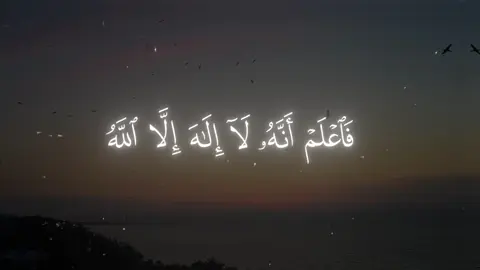 فَٱعْلَمْ أَنَّهُۥ لَآ إِلَٰهَ إِلَّا ٱللَّهُ